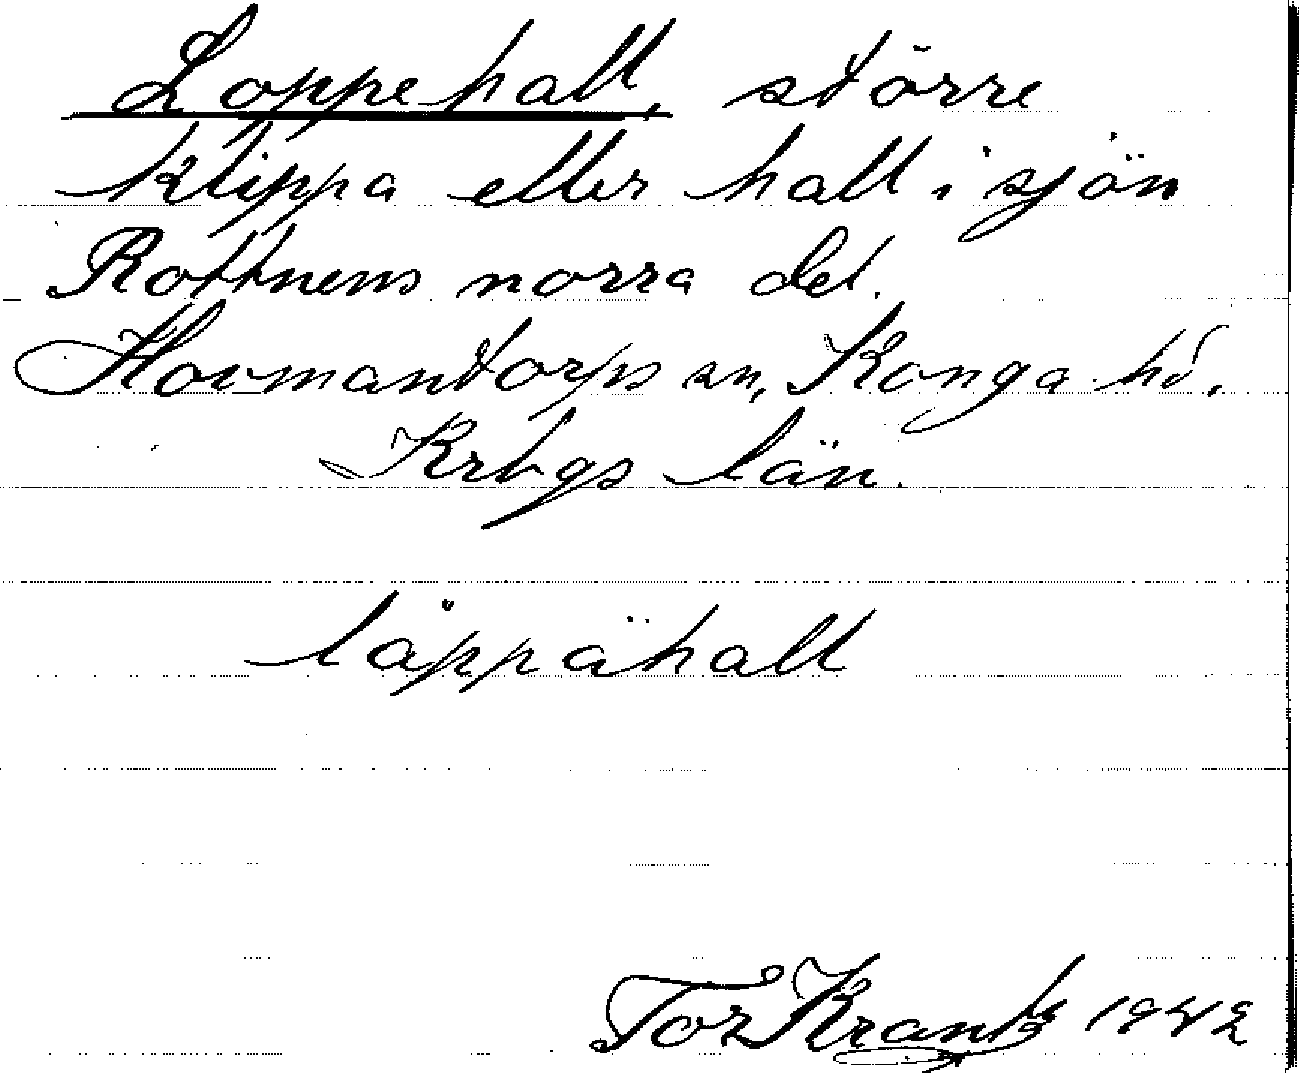 Loppehall, större
klippa eller hall i sjön
Rottnens norra del.
Hovmantorps sn, Konga hd.
Krbgs län.
låppähall
Tor Krantz 1942